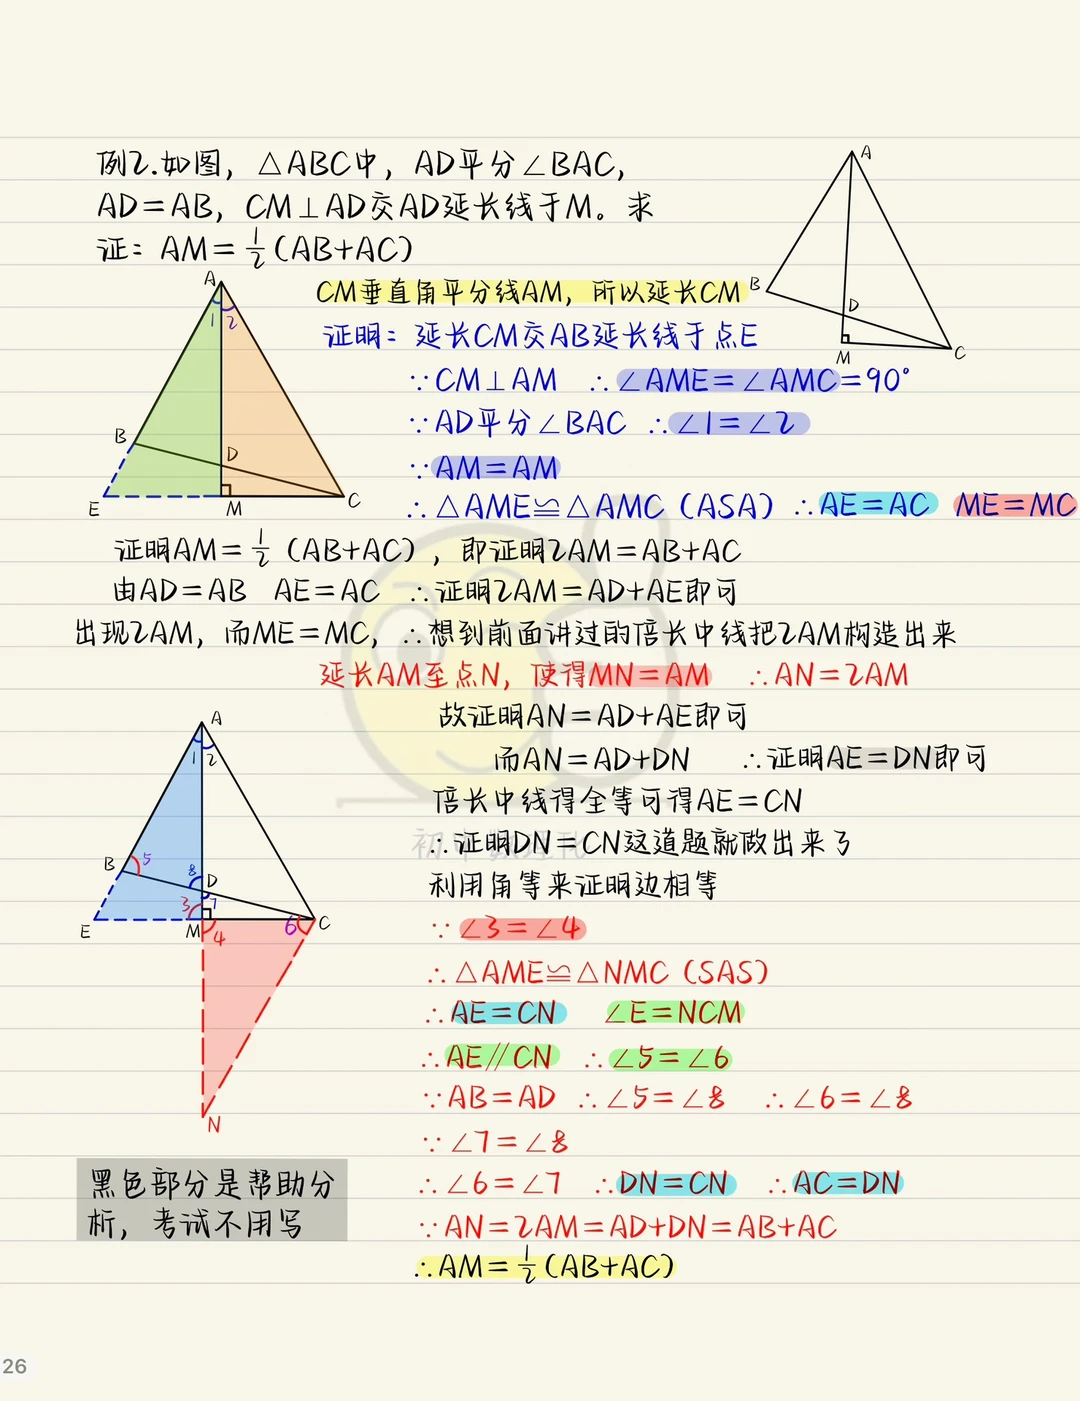 例2.如图，△ABC中，AD平分∠BAC，
AD=AB，CM⊥AD交AD延长线于M。求
证：AM=½(AB+AC)
A
B
D
M
C
CM垂直角平分线AM，所以延长CM
证明：延长CM交AB延长线于点E
∵CM⊥AM ∴∠AME=∠AMC=90°
∵AD平分∠BAC ∴∠1=∠2
∵AM=AM
∴△AME≌△AMC（ASA）∴AE=AC ME=MC
A
1 2
B
D
E
M
C
证明AM=½（AB+AC），即证明2AM=AB+AC
由AD=AB AE=AC ∴证明2AM=AD+AE即可
出现2AM，而ME=MC，∴想到前面讲过的倍长中线把2AM构造出来
延长AM至点N，使得MN=AM ∴AN=2AM
故证明AN=AD+AE即可
而AN=AD+DN ∴证明AE=DN即可
倍长中线得全等可得AE=CN
∴证明DN=CN这道题就做出来了
利用角等来证明边相等
∵∠3=∠4
∴△AME≌△NMC（SAS）
∴AE=CN ∠E=NCM
∴AE∥CN ∴∠5=∠6
∵AB=AD ∴∠5=∠8 ∴∠6=∠8
∵∠7=∠8
∴∠6=∠7 ∴DN=CN ∴AC=DN
∵AN=2AM=AD+DN=AB+AC
∴AM=½(AB+AC)
A
1 2
B 5
8 D
3 7
E
M 4
6 C
N
黑色部分是帮助分
析，考试不用写
初中数理化
26